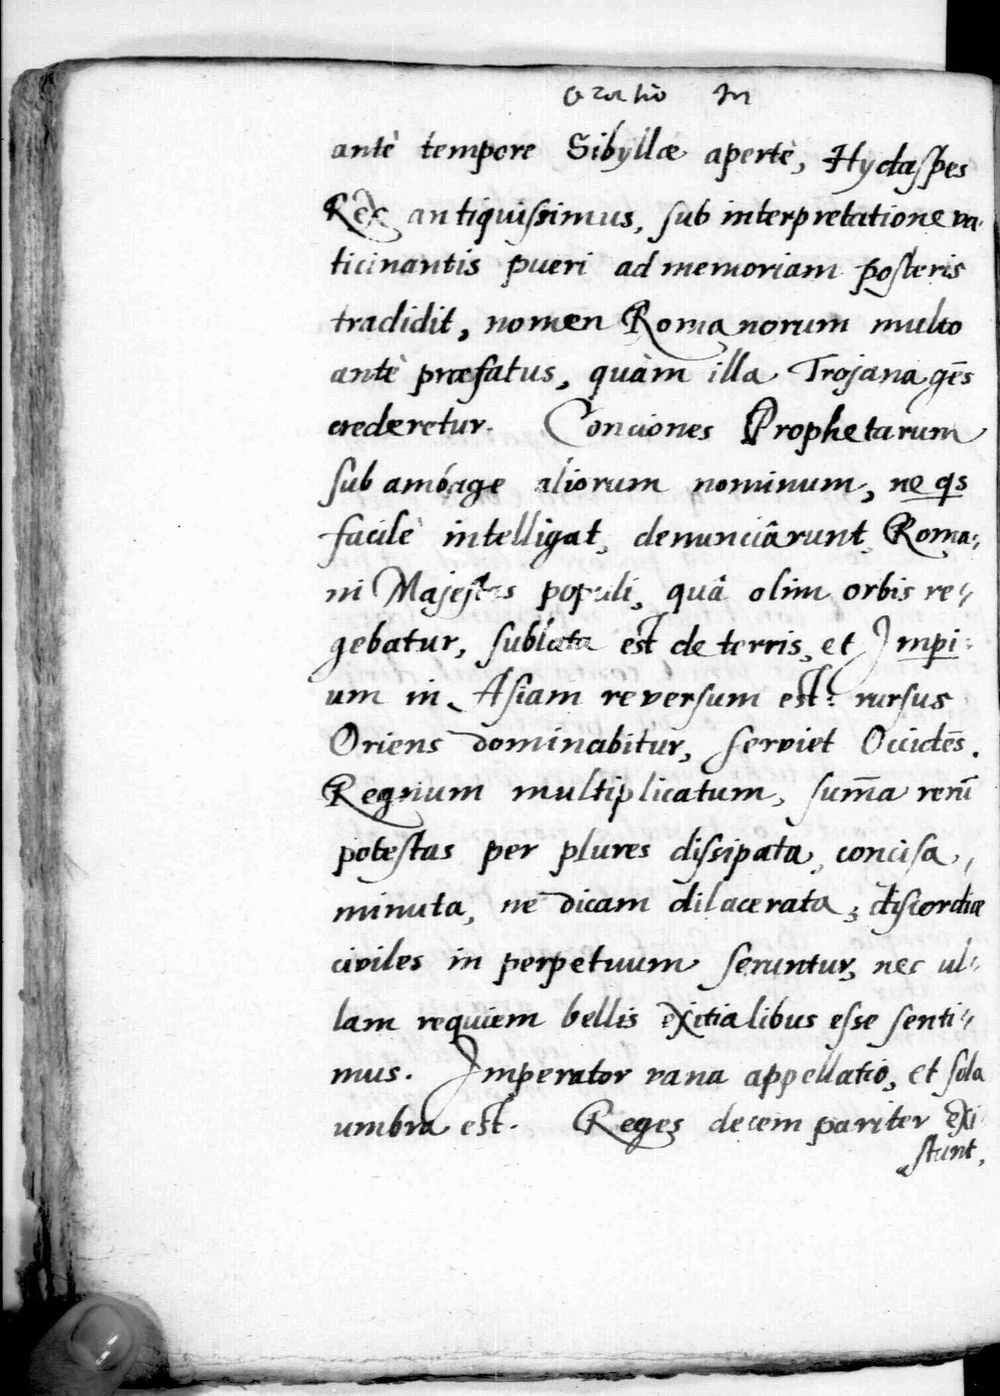 Oratio In
antè tempore Sibyllæ apertè, Hydaspes
Rex antiquissimus, sub interpretatione va-
ticinantis pueri ad memoriam posteris
tradidit, nomen Romanorum multo
antè præfatus, quàm illa Trojana gēs
crederetur. Conciones Prophetarum
sub ambage aliorum nominum, ne qs
facilè intelligat, denunciârunt, Roma-
ni Majestas populi, quâ olim orbis re-
gebatur, sublata est de terris, et Impi-
um in Asiam reversum est: rursus
Oriens dominabitur, serviet Occidēs.
Regnum multiplicatum, sum̄a rerū
potestas per plures dissipata, concisa,
minuta, ne dicam dilacerata; discordiæ
civiles in perpetuum seruntur, nec ul-
lam requiem bellis exitialibus esse senti-
mus. Imperator vana appellatio, et sola
umbra est. Reges decem pariter exi-
stunt,